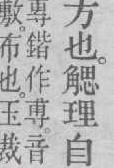 方也。䚡理自
專鍇作尃。音
敷。布也。玉裁